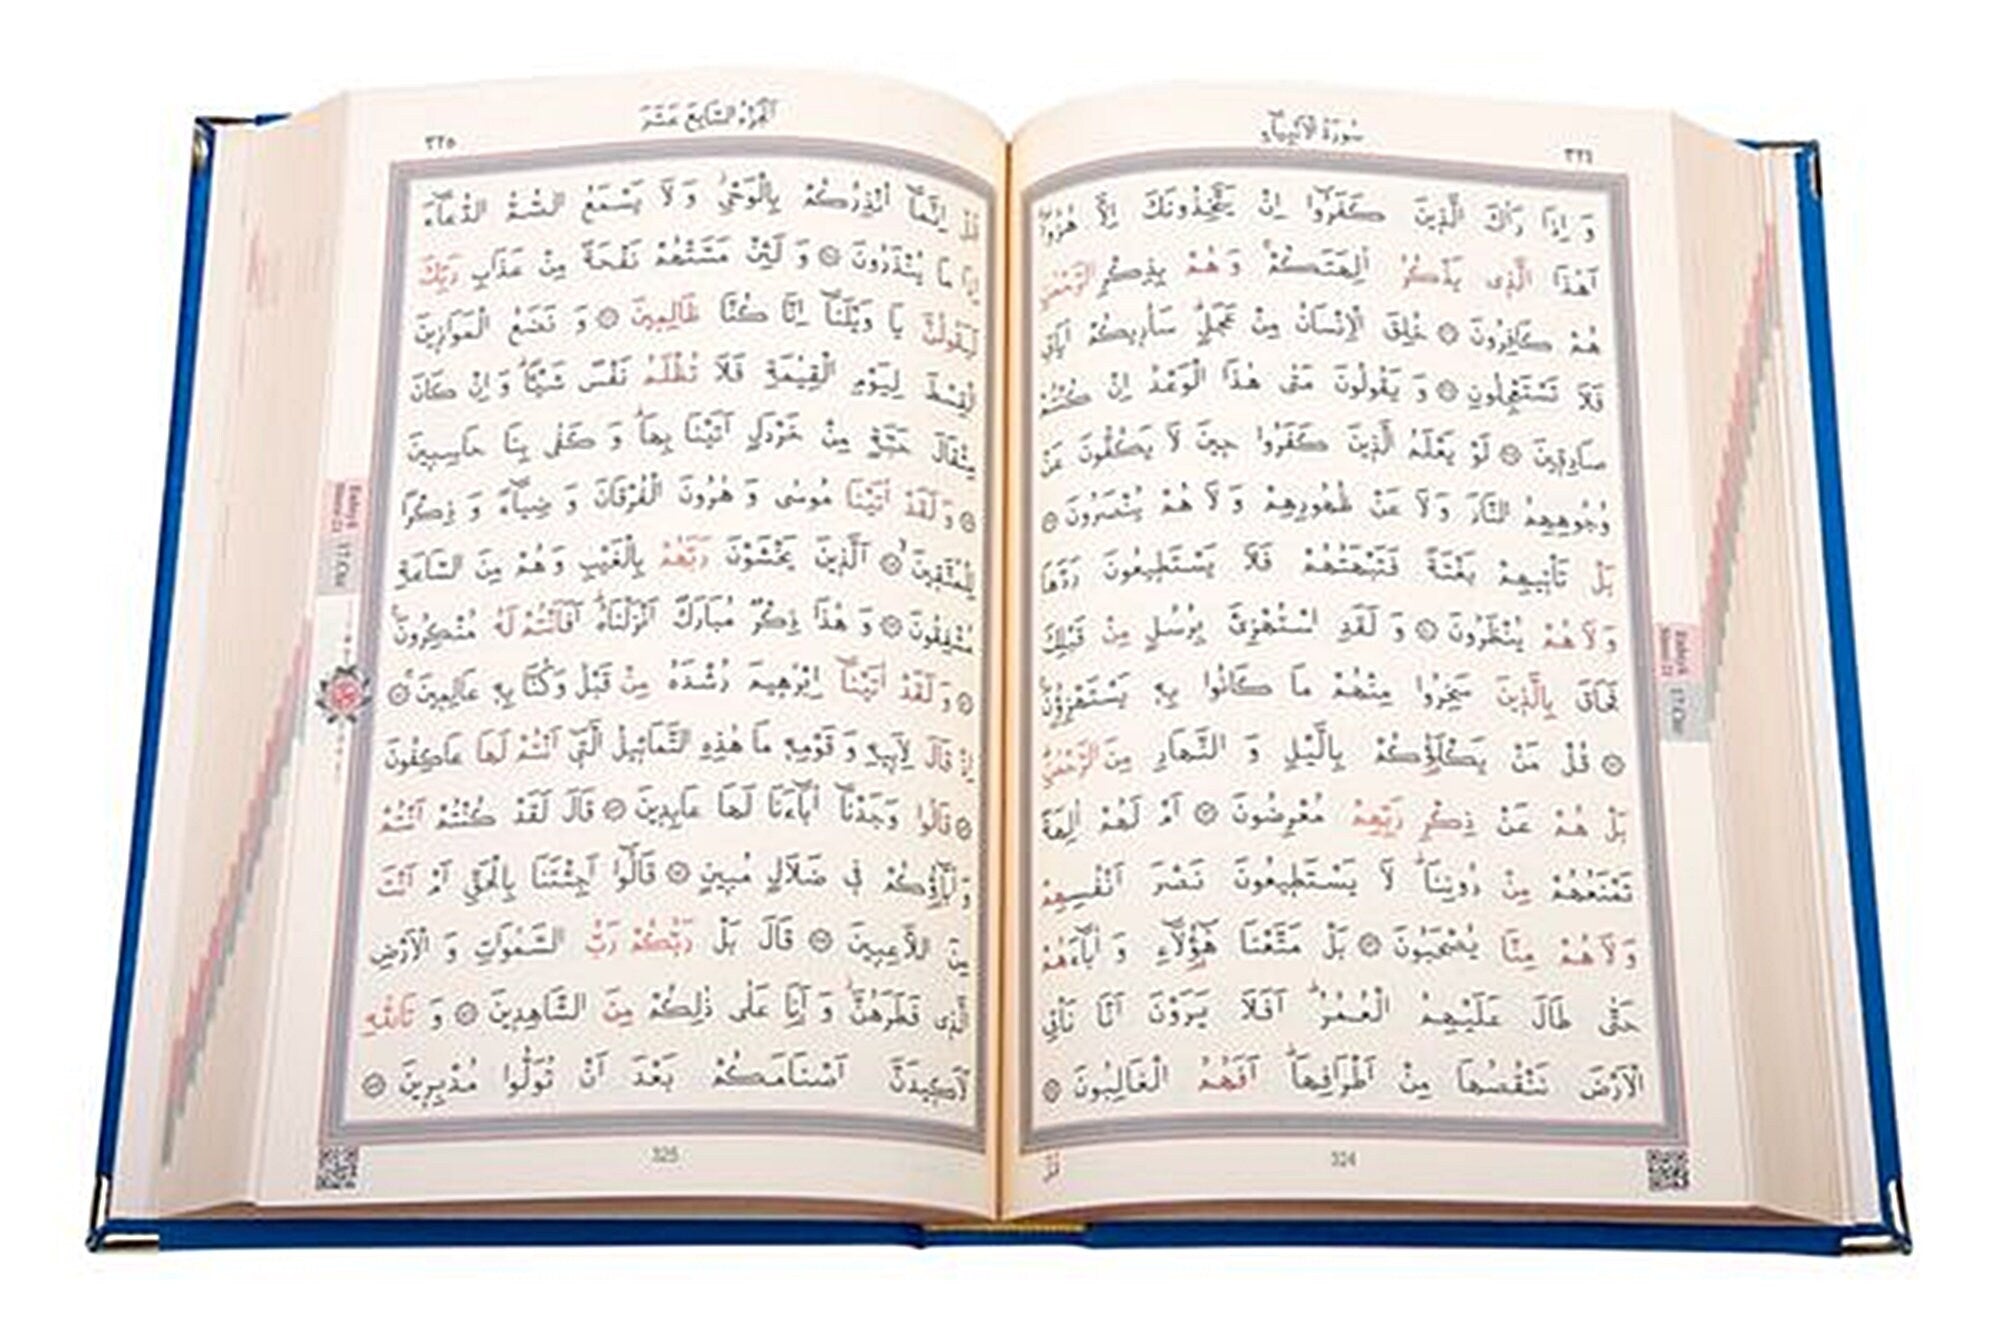 سُورَةُ الْاَنْبِيَاءِ
٣٢٤
وَ اِذَا رَاٰكَ الَّذِينَ كَفَرُوا اِنْ يَتَّخِذُونَكَ اِلَّا هُزُوًا
اَهٰذَا الَّذِى يَذْكُرُ اٰلِهَتَكُمْ وَ هُمْ بِذِكْرِ الرَّحْمٰنِ
هُمْ كَافِرُونَ خُلِقَ الْاِنْسَانُ مِنْ عَجَلٍ سَاُرِيكُمْ اٰيَاتِى
فَلَا تَسْتَعْجِلُونِ وَ يَقُولُونَ مَتٰى هٰذَا الْوَعْدُ اِنْ كُنْتُمْ
صَادِقِينَ لَوْ يَعْلَمُ الَّذِينَ كَفَرُوا حِينَ لَا يَكُفُّونَ عَنْ
وُجُوهِهِمُ النَّارَ وَلَا عَنْ ظُهُورِهِمْ وَلَا هُمْ يُنْصَرُونَ
بَلْ تَأْتِيهِمْ بَغْتَةً فَتَبْهَتُهُمْ فَلَا يَسْتَطِيعُونَ رَدَّهَا
وَلَا هُمْ يُنْظَرُونَ وَ لَقَدِ اسْتُهْزِئَ بِرُسُلٍ مِنْ قَبْلِكَ
فَحَاقَ بِالَّذِينَ سَخِرُوا مِنْهُمْ مَا كَانُوا بِهِ يَسْتَهْزِؤُنَ
قُلْ مَنْ يَكْلَؤُكُمْ بِالَّيْلِ وَ النَّهَارِ مِنَ الرَّحْمٰنِ
بَلْ هُمْ عَنْ ذِكْرِ رَبِّهِمْ مُعْرِضُونَ اَمْ لَهُمْ اٰلِهَةٌ
تَمْنَعُهُمْ مِنْ دُونِنَا لَا يَسْتَطِيعُونَ نَصْرَ اَنْفُسِهِمْ
وَلَا هُمْ مِنَّا يُصْحَبُونَ بَلْ مَتَّعْنَا هٰؤُلَاءِ وَ اٰبَاءَهُمْ
حَتّٰى طَالَ عَلَيْهِمُ الْعُمُرُ اَفَلَا يَرَوْنَ اَنَّا نَأْتِى
الْاَرْضَ نَنْقُصُهَا مِنْ اَطْرَافِهَا اَفَهُمُ الْغَالِبُونَ
324
قُلْ
الْجُزْءُ السَّابِعَ عَشَرَ
٣٢٥
قُلْ اِنَّمَا اُنْذِرُكُمْ بِالْوَحْىِ وَ لَا يَسْمَعُ الصُّمُّ الدُّعَاءَ
اِذَا مَا يُنْذَرُونَ وَ لَئِنْ مَسَّتْهُمْ نَفْحَةٌ مِنْ عَذَابِ رَبِّكَ
لَيَقُولُنَّ يَا وَيْلَنَا اِنَّا كُنَّا ظَالِمِينَ وَ نَضَعُ الْمَوَازِينَ
الْقِسْطَ لِيَوْمِ الْقِيٰمَةِ فَلَا تُظْلَمُ نَفْسٌ شَيْئًا وَ اِنْ كَانَ
مِثْقَالَ حَبَّةٍ مِنْ خَرْدَلٍ اَتَيْنَا بِهَا وَ كَفٰى بِنَا حَاسِبِينَ
وَ لَقَدْ اٰتَيْنَا مُوسٰى وَ هٰرُونَ الْفُرْقَانَ وَ ضِيَاءً وَ ذِكْرًا
لِلْمُتَّقِينَ اَلَّذِينَ يَخْشَوْنَ رَبَّهُمْ بِالْغَيْبِ وَ هُمْ مِنَ السَّاعَةِ
مُشْفِقُونَ وَ هٰذَا ذِكْرٌ مُبَارَكٌ اَنْزَلْنَاهُ اَفَاَنْتُمْ لَهُ مُنْكِرُونَ
وَ لَقَدْ اٰتَيْنَا اِبْرٰهِيمَ رُشْدَهُ مِنْ قَبْلُ وَ كُنَّا بِهِ عَالِمِينَ
اِذْ قَالَ لِاَبِيهِ وَ قَوْمِهِ مَا هٰذِهِ التَّمَاثِيلُ الَّتِى اَنْتُمْ لَهَا عَاكِفُونَ
قَالُوا وَجَدْنَا اٰبَاءَنَا لَهَا عَابِدِينَ قَالَ لَقَدْ كُنْتُمْ اَنْتُمْ
وَ اٰبَاؤُكُمْ فِى ضَلَالٍ مُبِينٍ قَالُوا اَجِئْتَنَا بِالْحَقِّ اَمْ اَنْتَ
مِنَ اللَّاعِبِينَ قَالَ بَلْ رَبُّكُمْ رَبُّ السَّمٰوَاتِ وَ الْاَرْضِ
الَّذِى فَطَرَهُنَّ وَ اَنَا عَلٰى ذٰلِكُمْ مِنَ الشَّاهِدِينَ وَ تَاللّٰهِ
لَاَكِيدَنَّ اَصْنَامَكُمْ بَعْدَ اَنْ تُوَلُّوا مُدْبِرِينَ
325